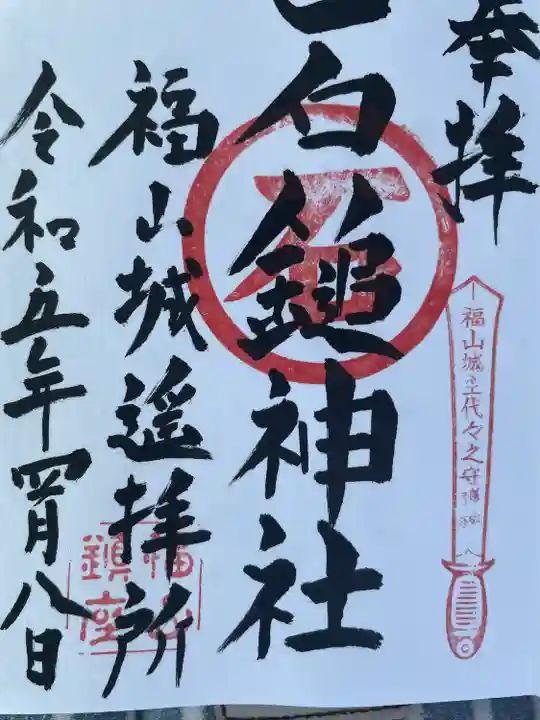 奉拝
石鎚神社
福山城遥拝所
令和五年四月八日
福山城主代々之守護神
石
福山
鎮座